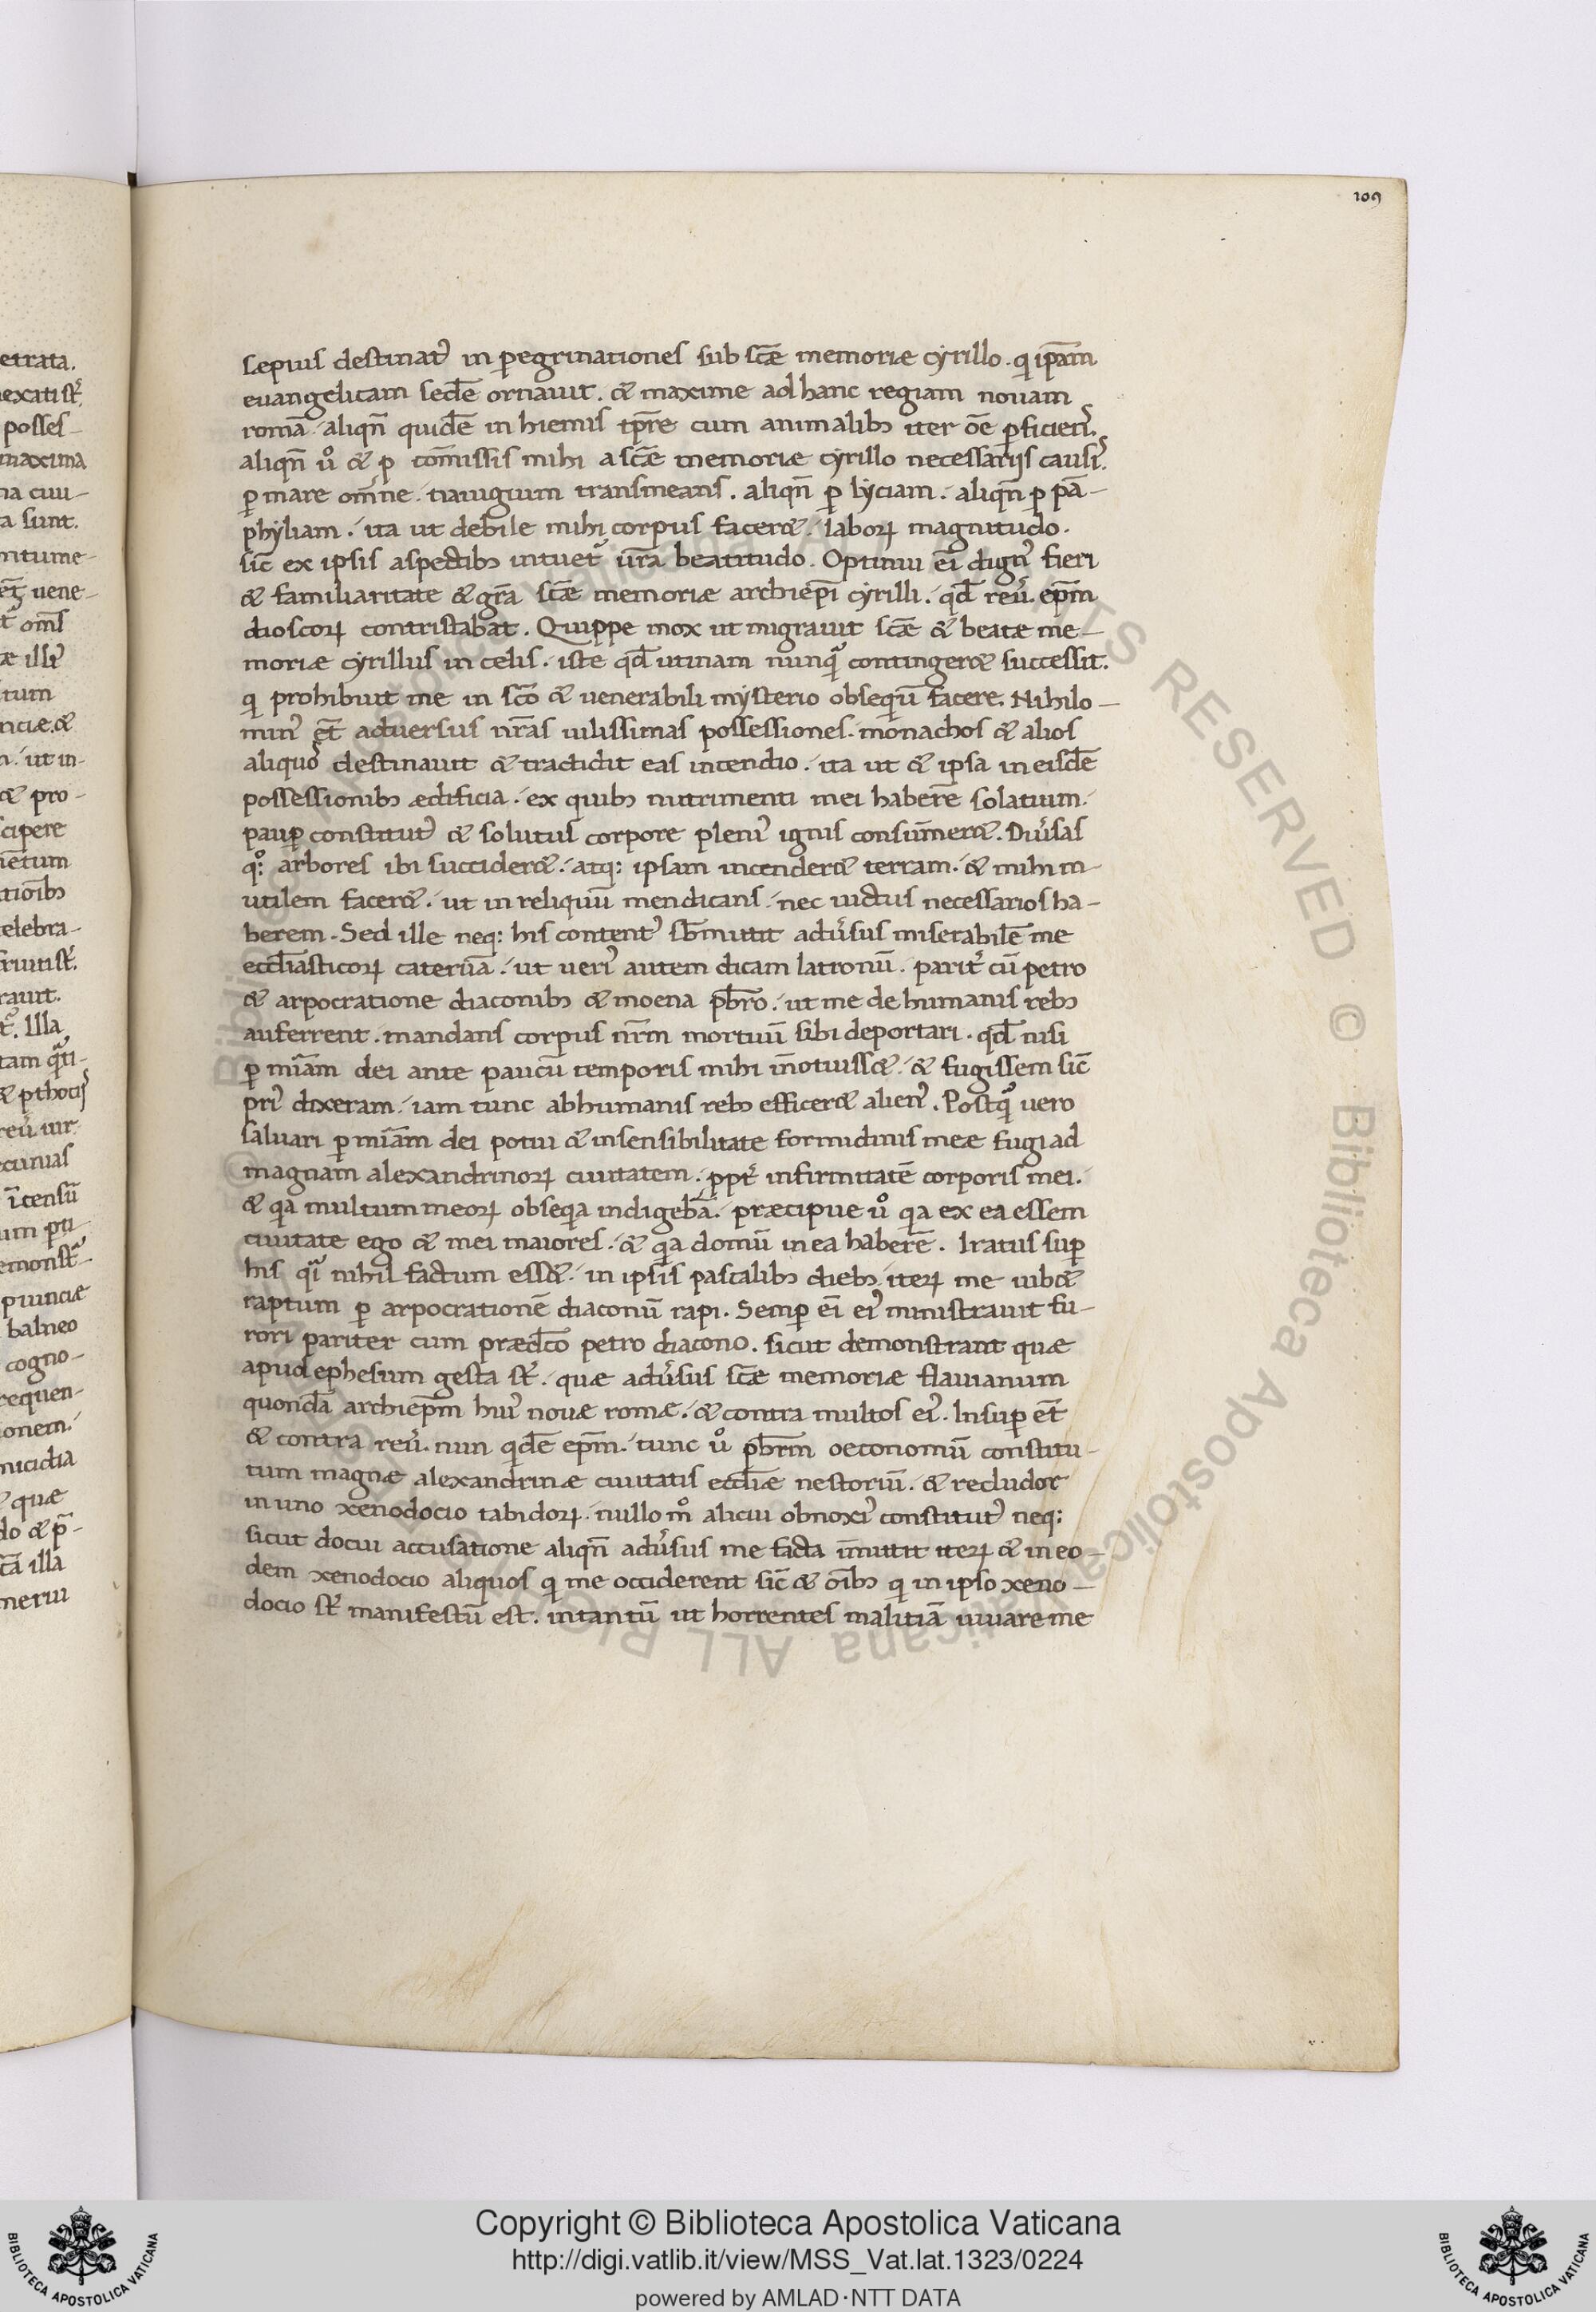 109
etrata.
posses-
maxima
na ciui-
a sunt.
illa
ciuias
balneo
cogno-
requen-
onem.
micidia
quæ
neriu
sepius destinat᷒ in ꝑegrinationes sub sc̄æ memoriæ cyrillo. q ip̄am
euangelicam sedē ornauit. & maxime ad hanc regiam nouam
romā. aliqn̄ quidē in hiemis tp̄re cum animalib; iter oē ꝑficien᷒.
aliqn̄ uº & ꝑ cōmissis mihi a sc̄æ memoriæ cyrillo necessarijs causis.
ꝑ mare om̄ne. nauigium transmeans. aliqn̄ ꝑ lyciam. aliqn̄ ꝑ pā-
phyliam. ita ut debile mihi corpus facer&. laboꝝ magnitudo.
sic̄ ex ipsis aspectib; intuet᷒ ur̄a beatitudo. Optinui ei᷒ dign᷒ fieri
& familiaritate & gr̄a sc̄æ memoriæ archiep̄i cyrilli. qd̄ reu᷒. ep̄m
dioscoꝝ contristabat. Quippe mox ut migrauit sc̄æ & beatæ me-
moriæ cyrillus in celis. iste qd̄ utinam nunqᷓ continger& successit.
q prohibuit me in sc̄o & uenerabili mysterio obsequiū facere. Nihilo-
min᷒ et̄ aduersus nr̄as uilissimas possessiones. monachos & alios
aliquos destinauit & tradidit eas incendio. ita ut & ipsa in eisdē
possessionib; ædificia. ex quib; nutrimenti mei haberē solatium.
pauꝑ constitut᷒ & solutus corpore pleni᷒ ignis consumer&. Diu᷒sas
qº: arbores ibi succider&. atq: ipsam incender& terram. & mihi in-
utilem facer&. ut in reliquū mendicans. nec uictus necessarios ha-
berem. Sed ille neq: his content᷒ sb̄mittit adu᷒sus miserabilē me
eccl̄iasticoꝝ cateruā. ut ueri᷒ autem dicam latronū. parit᷒ cū petro
& arpocratione diaconib; & moena pb̄ro. ut me de humanis reb;
auferrent. mandans corpus nr̄m mortuū sibi deportari. qd̄ nisi
ꝑ mīam dei ante paucū temporis mihi īnotuiss&. & fugissem sic̄
pri᷒ dixeram. iam tunc ab humanis reb; efficer& alien᷒. Postqᷓ uero
saluari ꝑ mīam dei potui & insensibilitate formidinis meæ fugi ad
magnam alexandrinoꝝ ciuitatem. ꝓpt᷒ infirmitatē corporis mei.
& qa multum meoꝝ obseqia indigebā. præcipue uº qa ex ea essem
ciuitate ego & mei maiores. & qa domū in ea haberē. Iratus suꝑ
his qᷓ nihil factum ess&. in ipsis pascalib; dieb; iteꝝ me iub&
raptum ꝑ arpocrationē diaconū rapi. Semꝑ ei᷒ ministrauit fu-
rori pariter cum prædc̄o petro diacono. sicut demonstrant quæ
apud ephesum gesta st᷒. quæ adu᷒sus sc̄æ memoriæ flauianum
quondā archiep̄m hui᷒ nouæ romæ. & contra multos ei᷒. Insuꝑ et̄
& contra reu᷒. nun qdē ep̄m. tunc uº pb̄rm oeconomū constitu-
tum magnæ alexandrinæ ciuitatis eccl̄iæ nestoriū. & recludor
in uno xenodocio tabidoꝝ. nullo mº alicui obnoxi᷒ constitut᷒ neq:
sicut docui accusatione aliqn̄ adu᷒sus me facta īmittit iteꝝ & in eo-
dem xenodocio aliquos q me occiderent sic̄ & oīb; q in ipso xeno-
docio st᷒ manifestū est. intantū ut horrentes malitiā iuuare me
© Biblioteca Apostolica Vaticana ALL RIGHTS RESERVED © Biblioteca Apostolica Vaticana ALL RIGHTS RESERVED
Copyright © Biblioteca Apostolica Vaticana
http://digi.vatlib.it/view/MSS_Vat.lat.1323/0224
powered by AMLAD·NTT DATA
BIBLIOTECA APOSTOLICA VATICANA
BIBLIOTECA APOSTOLICA VATICANA